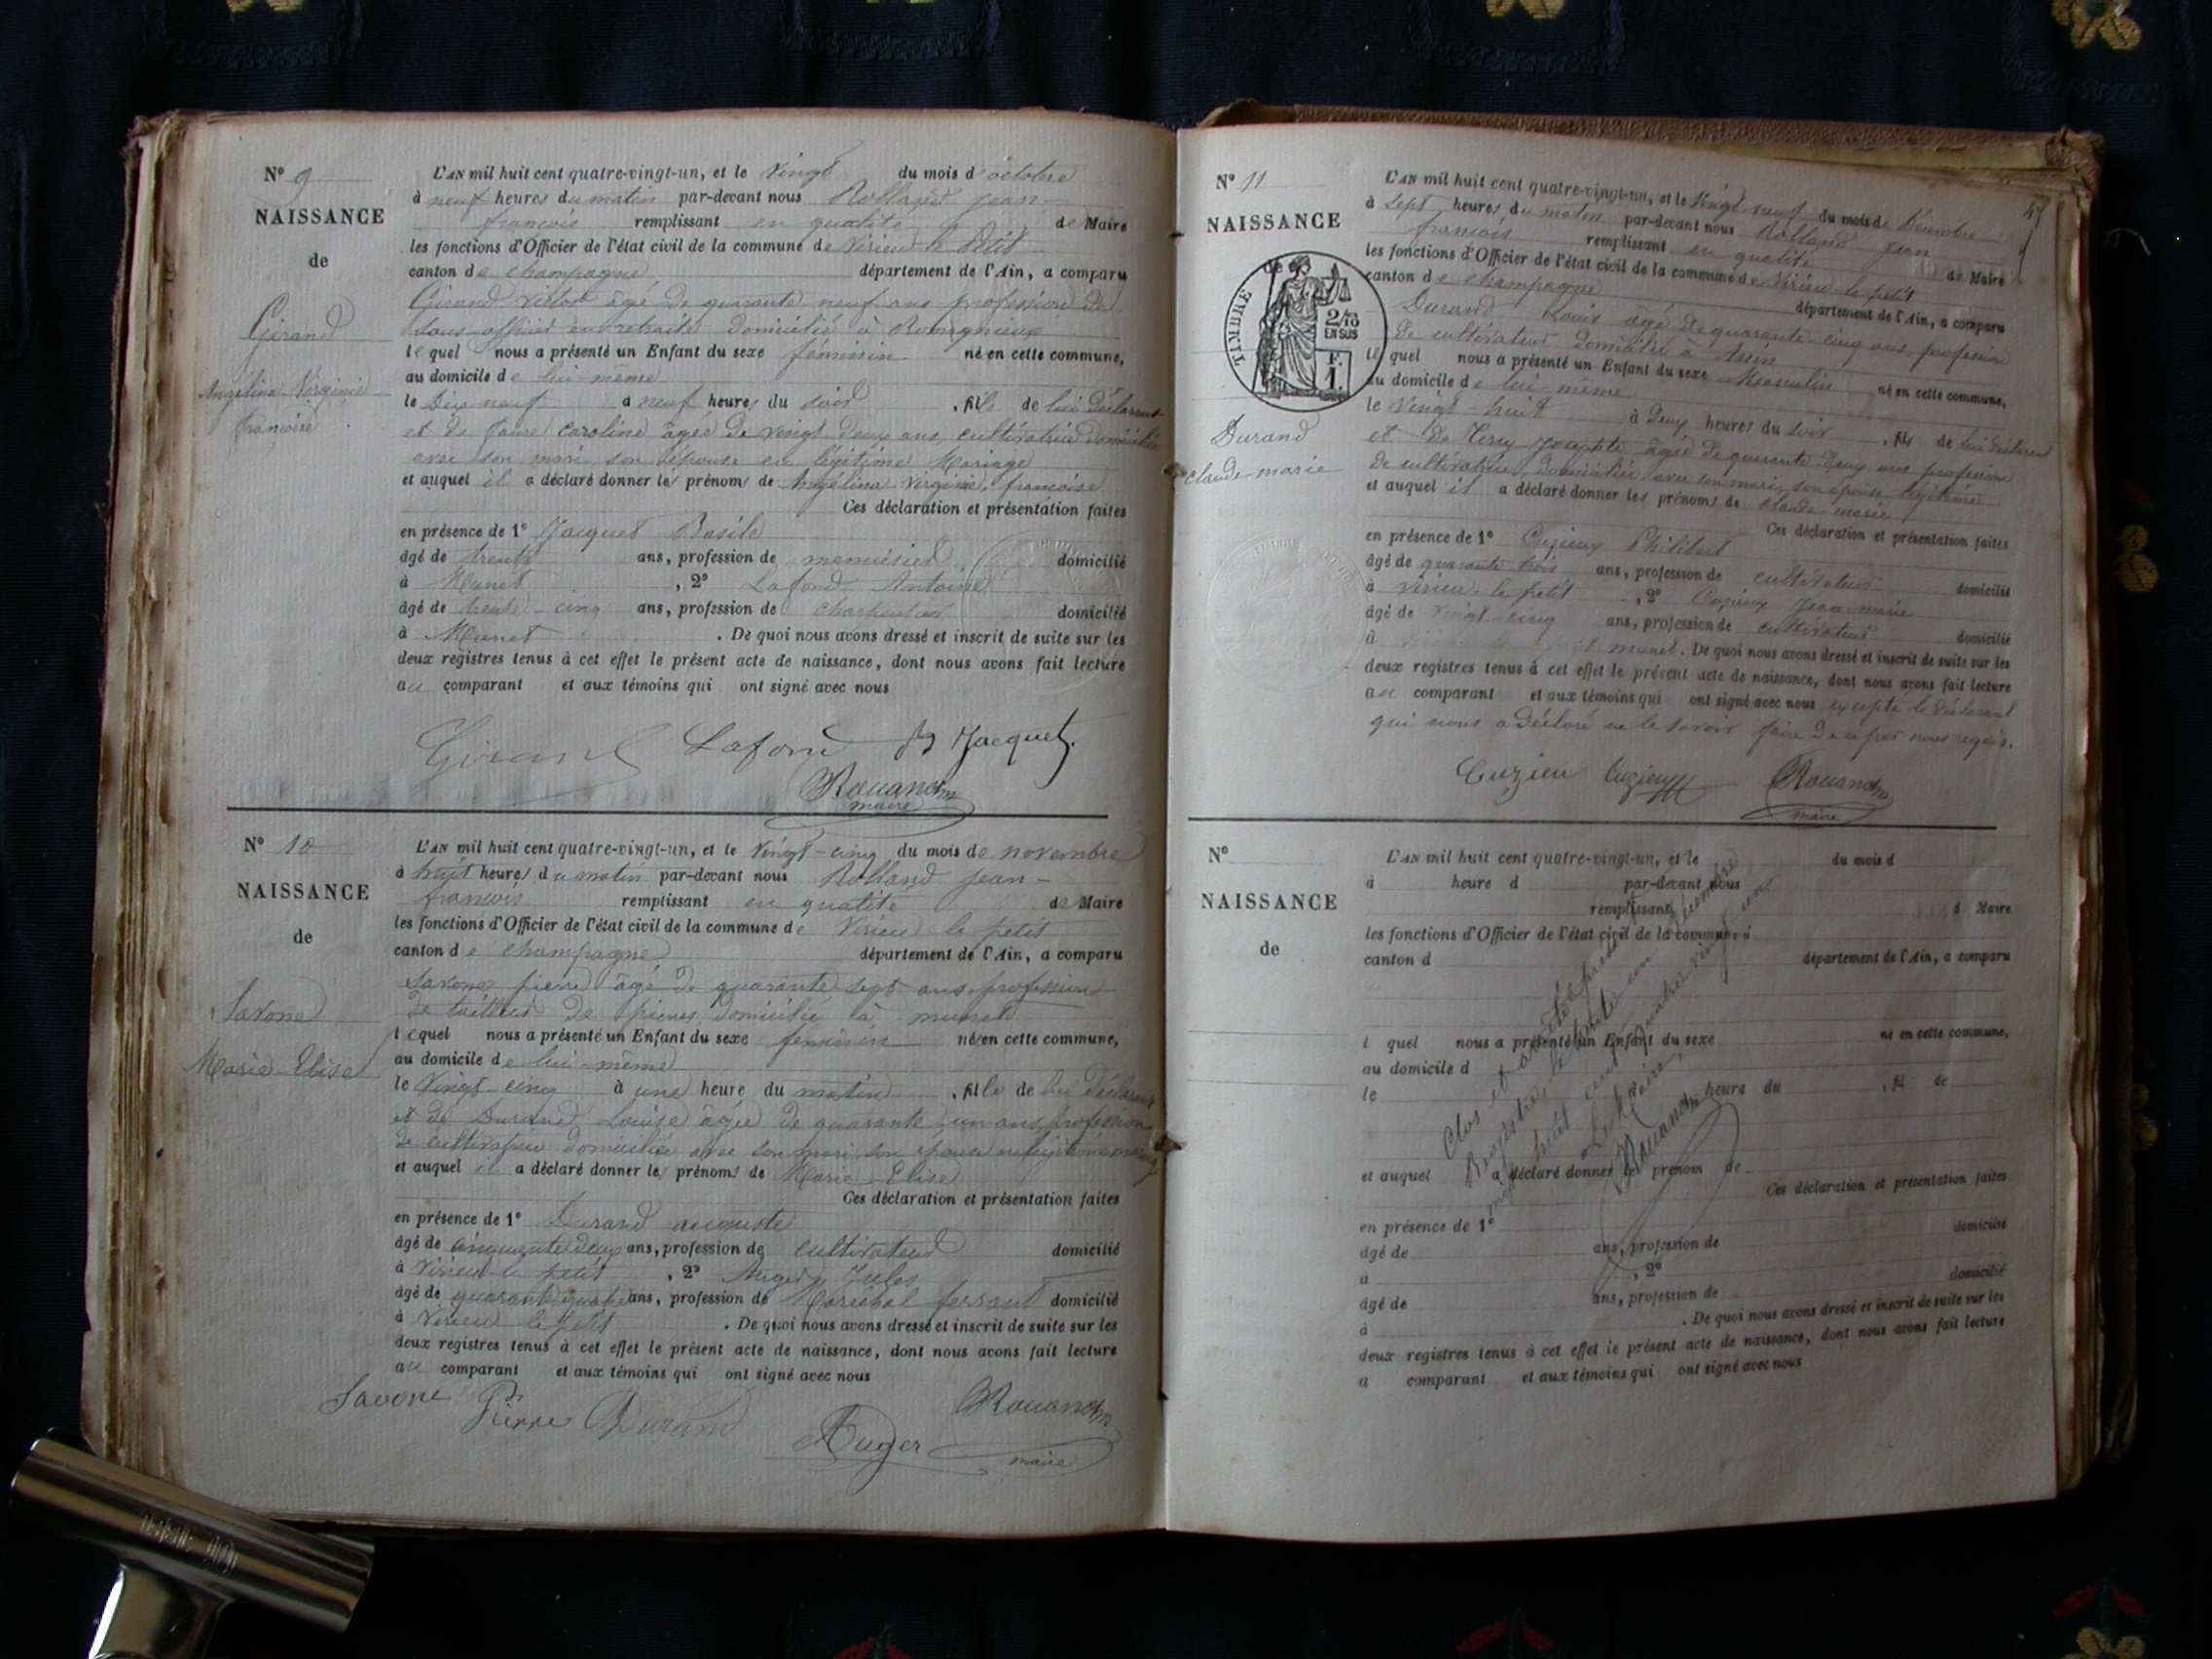 N° 9
NAISSANCE
de
Girand
Angélina Virginie
françoise
L'AN mil huit cent quatre-vingt-un, et le Vingt du mois d'octobre
à neuf heures du matin par-devant nous Rolland jean-
françois remplissant en qualité de Maire
les fonctions d'Officier de l'état civil de la commune de Virieu le petit
canton de champagne département de l'Ain, a comparu
Girand âgé de quarante neuf ans profession de
sous officier en retraite domicilié à
lequel nous a présenté un Enfant du sexe féminin né en cette commune,
au domicile de lui-même
le Dix neuf à neuf heures du soir , fille de lui déclarant
et de caroline âgée de vingt deux ans, cultivatrice domiciliée
avec son mari, son épouse en légitime Mariage
et auquel il a déclaré donner les prénoms de Angélina Virginie, françoise
Ces déclaration et présentation faites
en présence de 1° Jacquet Basile
âgé de trente ans, profession de menuisier domicilié
à Munet , 2° Lafond Antoine
âgé de trente-cinq ans, profession de charpentier domicilié
à Munet . De quoi nous avons dressé et inscrit de suite sur les
deux registres tenus à cet effet le présent acte de naissance, dont nous avons fait lecture
au comparant et aux témoins qui ont signé avec nous
Girand Lafond Jacquet
maire
N° 10
NAISSANCE
de
Savone
Marie Elise
L'AN mil huit cent quatre-vingt-un, et le Vingt-cinq du mois de novembre
à huit heures du matin par-devant nous Rolland jean-
françois remplissant en qualité de Maire
les fonctions d'Officier de l'état civil de la commune de Virieu le petit
canton de champagne département de l'Ain, a comparu
Savone pierre âgé de quarante sept ans profession
de tailleur de pierres domicilié à munet
lequel nous a présenté un Enfant du sexe féminin né en cette commune,
au domicile de lui-même
le Vingt-cinq à une heure du matin , fille de lui déclarant
et de Durand Louise âgée de quarante un ans profession
de cultivatrice domiciliée avec son mari son épouse en légitime mariage
et auquel il a déclaré donner les prénoms de Marie Elise
Ces déclaration et présentation faites
en présence de 1° Durand auguste
âgé de cinquante deux ans, profession de cultivateur domicilié
à Virieu le petit , 2° Auger Jules
âgé de quarante quatre ans, profession de Maréchal ferrant domicilié
à Virieu le petit . De quoi nous avons dressé et inscrit de suite sur les
deux registres tenus à cet effet le présent acte de naissance, dont nous avons fait lecture
au comparant et aux témoins qui ont signé avec nous
Savone Pierre Durand Auger
maire
N° 11
NAISSANCE
de
TIMBRE
2/10
EN SUS
F.
1.
Durand
claude marie
L'AN mil huit cent quatre-vingt-un, et le Vingt-neuf du mois de Décembre
à sept heures du matin par-devant nous Rolland jean
françois remplissant en qualité de Maire
les fonctions d'Officier de l'état civil de la commune de Virieu le petit
canton de champagne département de l'Ain, a comparu
Durand Louis âgé de quarante cinq ans, profession
de cultivateur domicilié à
lequel nous a présenté un Enfant du sexe Masculin né en cette commune,
au domicile de lui-même
le Vingt-huit à Deux heures du soir , fils de lui déclarant
et de josephte âgée de quarante deux ans profession
de cultivatrice domiciliée avec son mari, son épouse légitime
et auquel il a déclaré donner les prénoms de claude marie
Ces déclaration et présentation faites
en présence de 1° Cuzieux Philibert
âgé de quarante trois ans, profession de cultivateur domicilié
à Virieu le petit , 2° Cuzieux Jean-marie
âgé de vingt-cinq ans, profession de cultivateur domicilié
à munet. De quoi nous avons dressé et inscrit de suite sur les
deux registres tenus à cet effet le présent acte de naissance, dont nous avons fait lecture
au comparant et aux témoins qui ont signé avec nous excepté le déclarant
qui nous a déclaré ne le savoir faire de ce par nous requis.
Cuzieu Cuzieux
maire
N°
NAISSANCE
de
L'AN mil huit cent quatre-vingt-un, et le du mois d
à heure d par-devant nous
remplissant d Maire
les fonctions d'Officier de l'état civil de la commune d
canton d département de l'Ain, a comparu
l quel nous a présenté un Enfant du sexe né en cette commune,
au domicile d
le heure du , fil de
et auquel a déclaré donner le prénom de
Ces déclaration et présentation faites
en présence de 1° domicilié
âgé de ans, profession de
à , 2° domicilié
âgé de ans, profession de
à . De quoi nous avons dressé et inscrit de suite sur les
deux registres tenus à cet effet le présent acte de naissance, dont nous avons fait lecture
a comparant et aux témoins qui ont signé avec nous
Clos et arrêté le présent
Registre, le trente un Décembre
mil huit cent quatre vingt un
Le Maire,